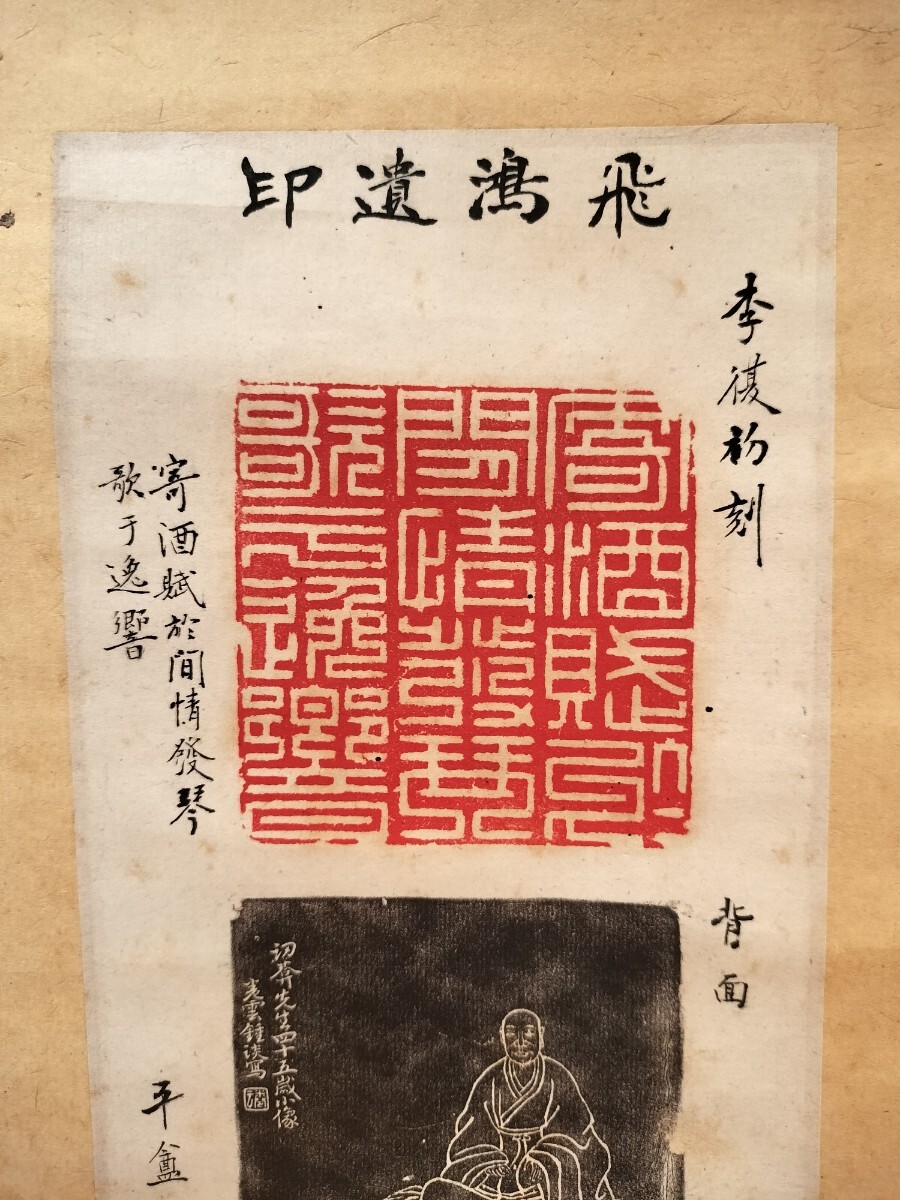 飛鴻遺印
李復初刻
寄酒賦於閒情發琴
歌于逸響
寄酒賦於
閒情發琴
歌于逸響
背面
先生四十五歲小像
雲鍾譔寫
平盦